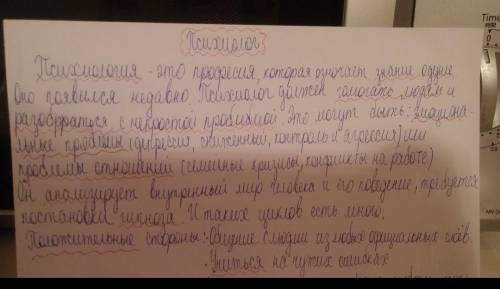 Психолог.
Психология - это профессия, которая означает знание о душе
Оно появился недавно. Психолог должен помогать людям и
разобраться с непростой проблемой. Это могут быть: эмоциона-
льные проблемы (депрессии, сниженный, контроль и агрессия) или
проблемы отношении (семейные кризисы, конфликты на работе)
Он анализирует внутренный мир человека и его поведение, требуется
постановки И таких циклов есть много.
Положительные стороны: Общение с людми из любых социальных слоёв.
· Учиться на чужих ошибках